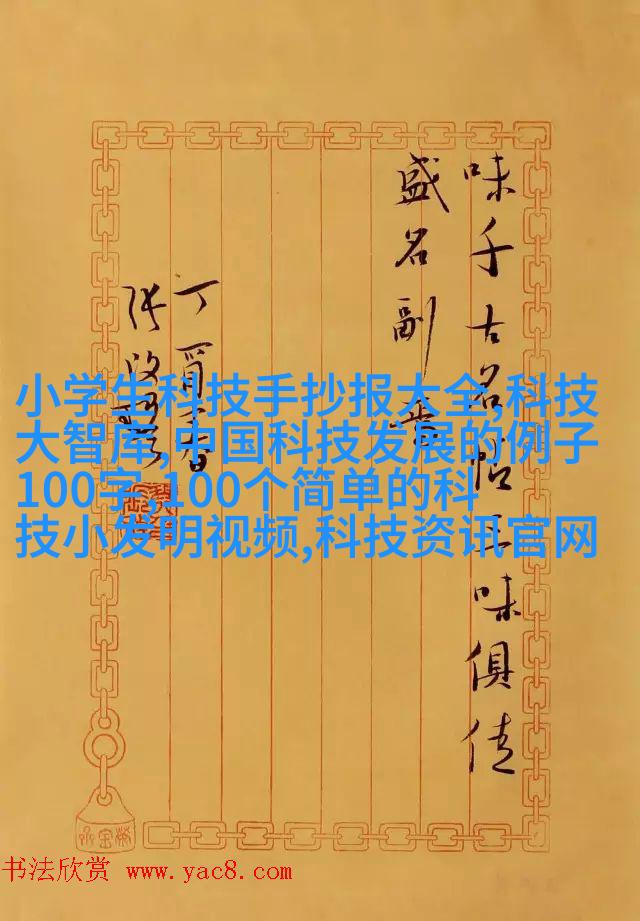 味千古名帖三味俱佳
盛名副
丁酉春
张改琴
小学生科技手抄报大全,科技
大智库,中国科技发展的例子
100字,100个简单的科
技小发明视频,科技资讯官网
书法欣赏 www.yac8.com